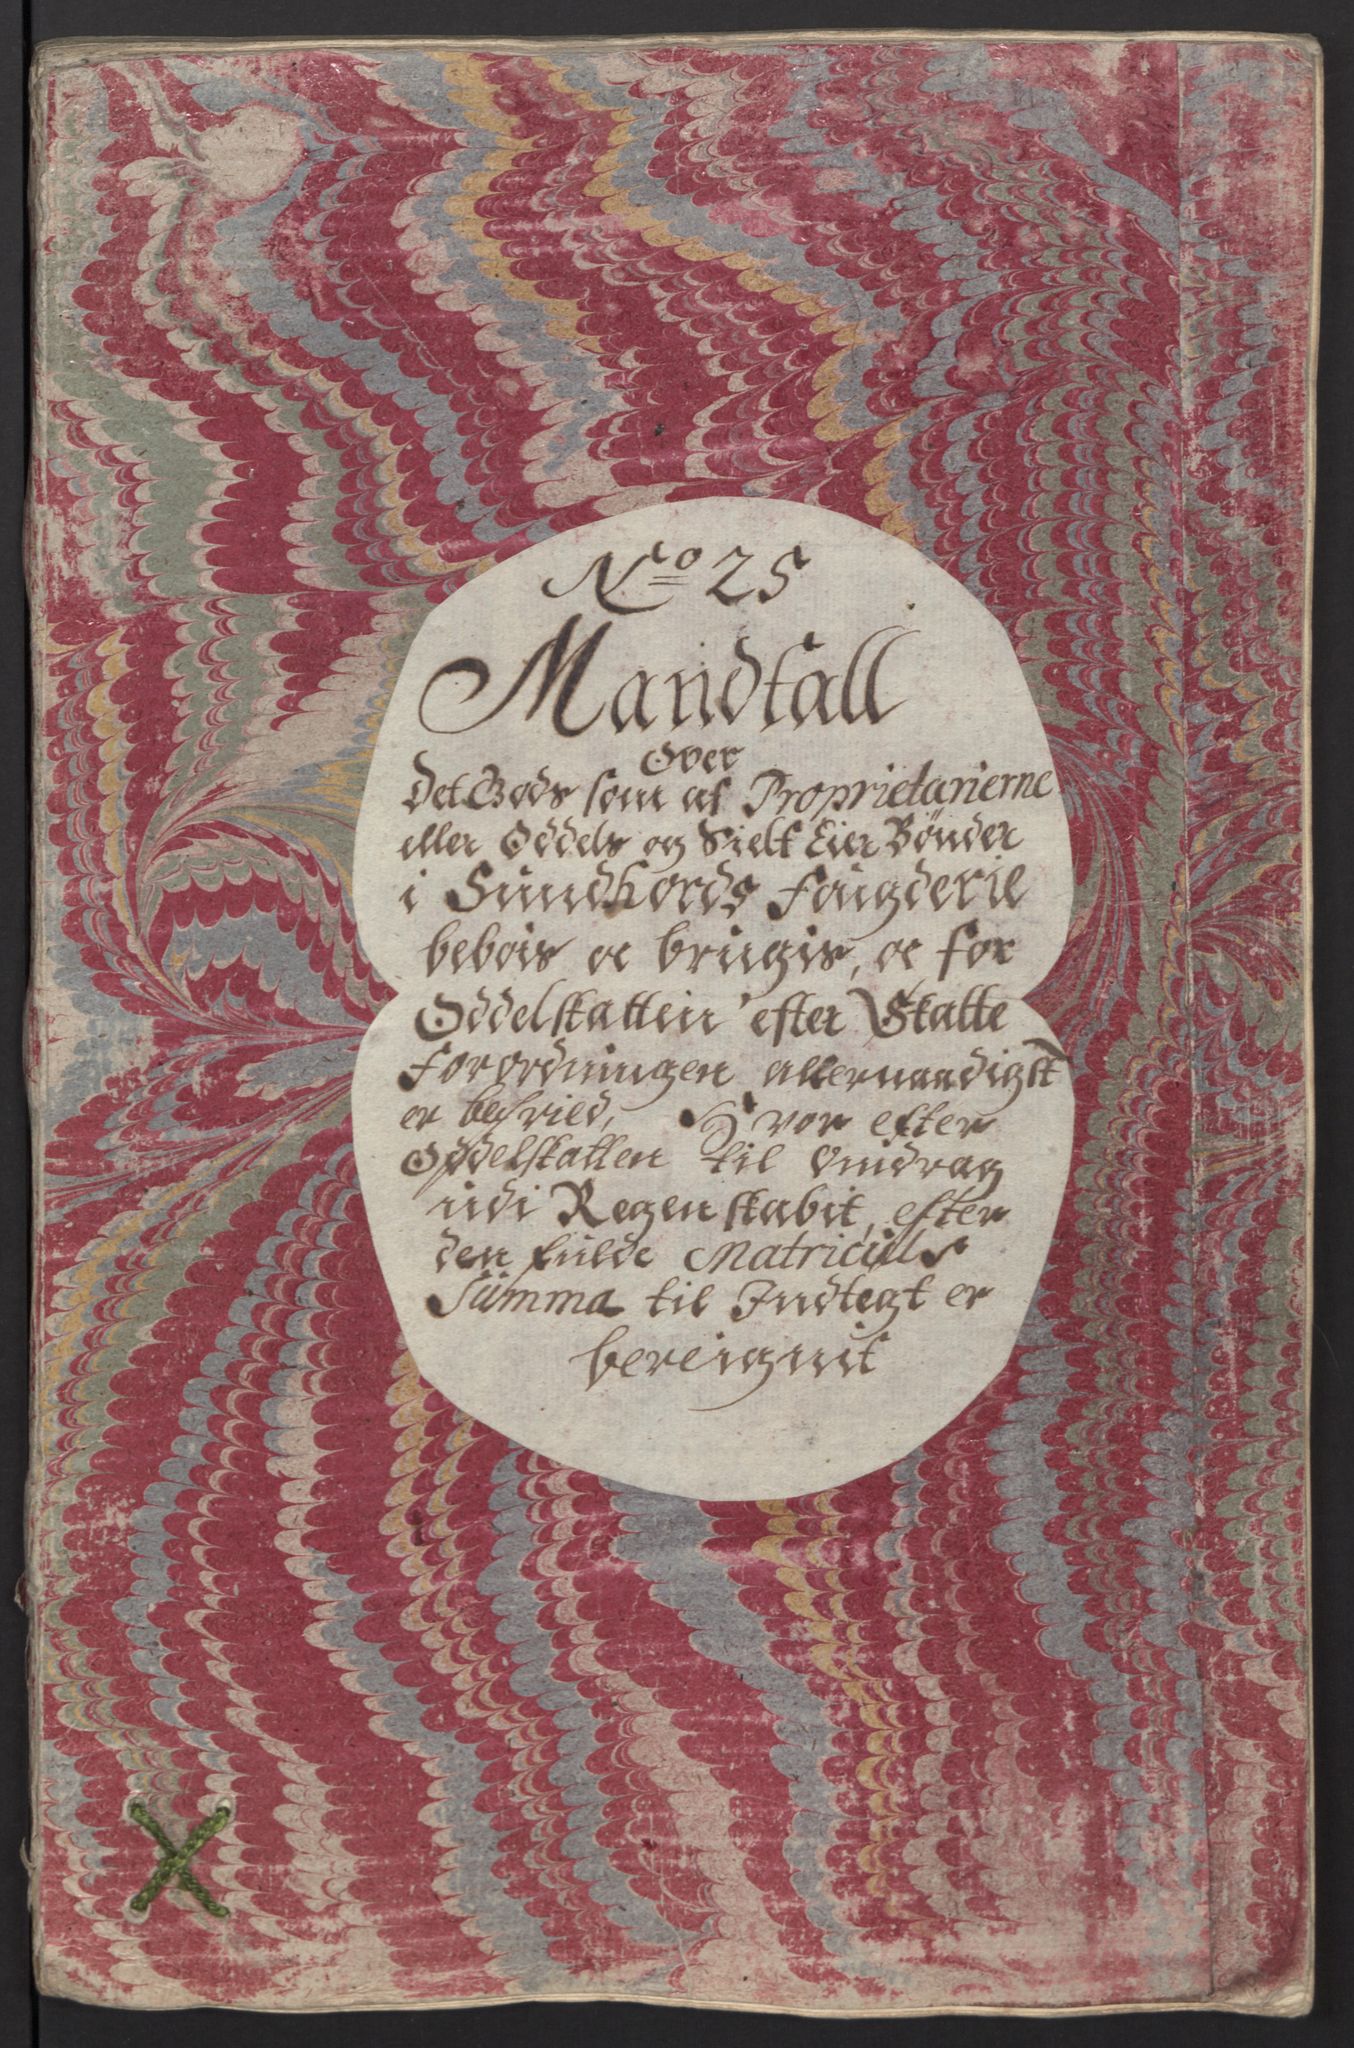 No 25
Mandtall
Over
det Gods som af Proprietarierne
eller Oddels og Sielf Eier Bønder
i Sundhords fougderie
bebois oc brugis, oc for
Oddelskatten efter Skatte
forordningen allernaadigst
er befried, Hvor efter
Oddelskatten til Omdrag
udi Regenskabit, efter
den fulde Matriculs
Summa til Indtegt er
bereignit